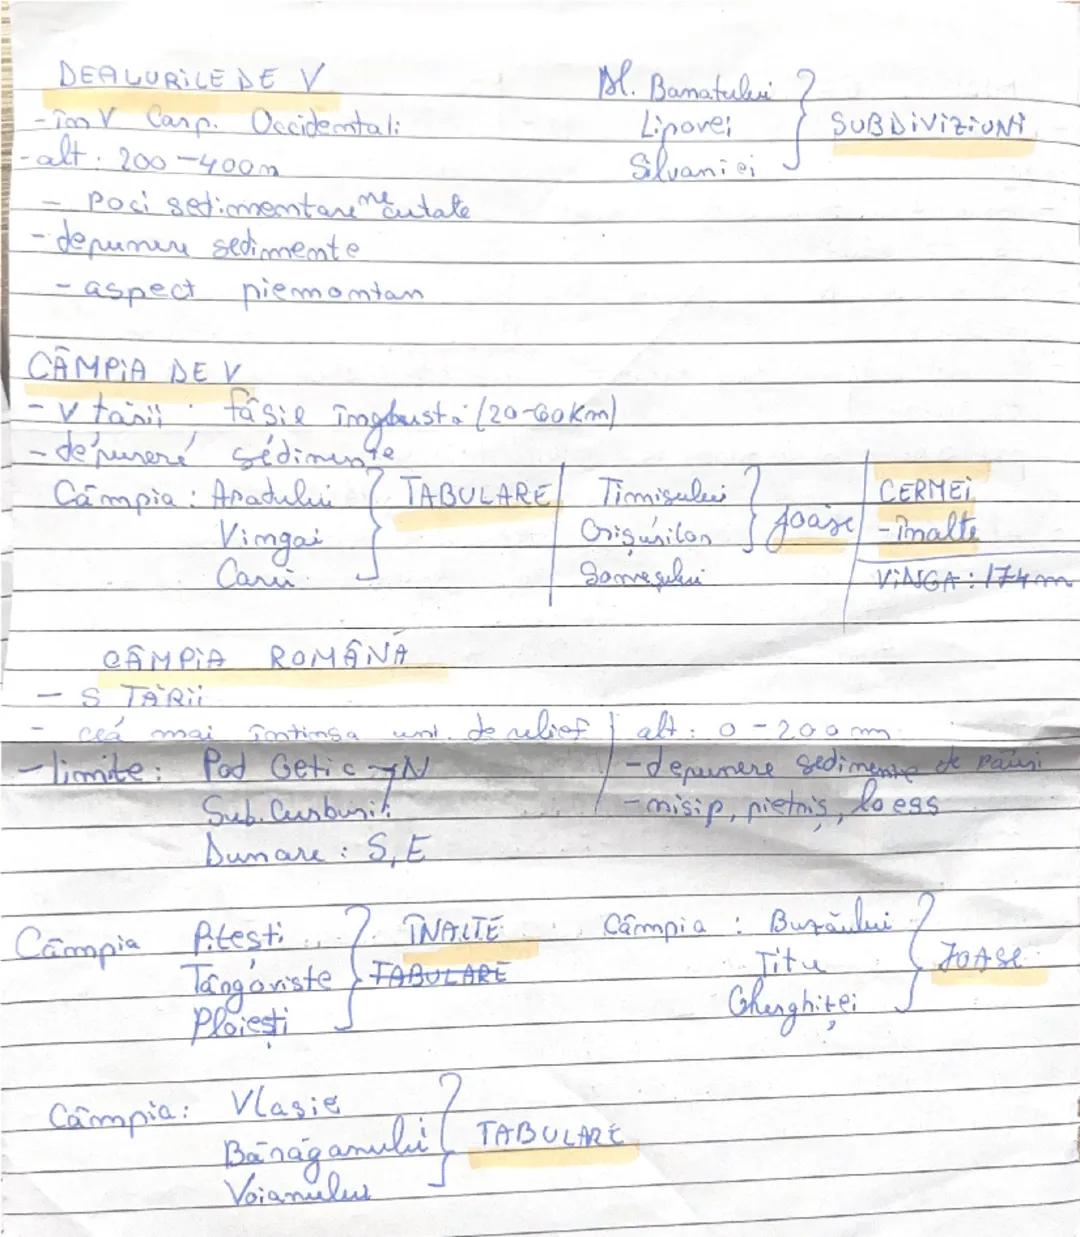 DEALURILE DE V
- în V Carp. Occidentali
- alt. 200-400m
- roci sedimentare necutate
- depunere sedimente
- aspect piemontan
Dl. Banatului
Lipovei
Silvaniei
SUBDIVIZIUNI
CÂMPIA DE V
- V țării: fâșie îngustă (20-60km)
- depunere sedimente
Câmpia: Aradului
Vingăi
Carei
TABULARE
Timișului
Crișurilor
Someșului
joase
CERMEI
- înalte
VINGA: 174 m
CÂMPIA ROMÂNĂ
- S ȚĂRII
- cea mai întinsa unit. de relief
- limite: Pod Getic → N
Sub. Curburii:
Dunare: S, E
alt: 0-200m
- depunere sedimente de râuri
- nisip, pietriș, loess
Câmpia Pitești
Târgoviște
Ploiești
ÎNALTE
TABULARE
Câmpia: Buzăului
Titu
Gherghiței
JOASE
Câmpia: Vlasie
Bărăganului
TABULARE